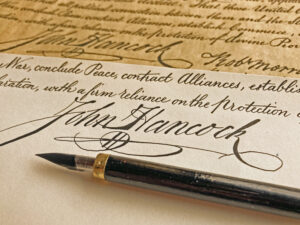 that these United
and the
commerce, and
Protection of divine Prov
John Hancock
Robt Morris
War, conclude Peace, contract Alliances, establis
aration, with a firm reliance on the Protection of
John Hancock